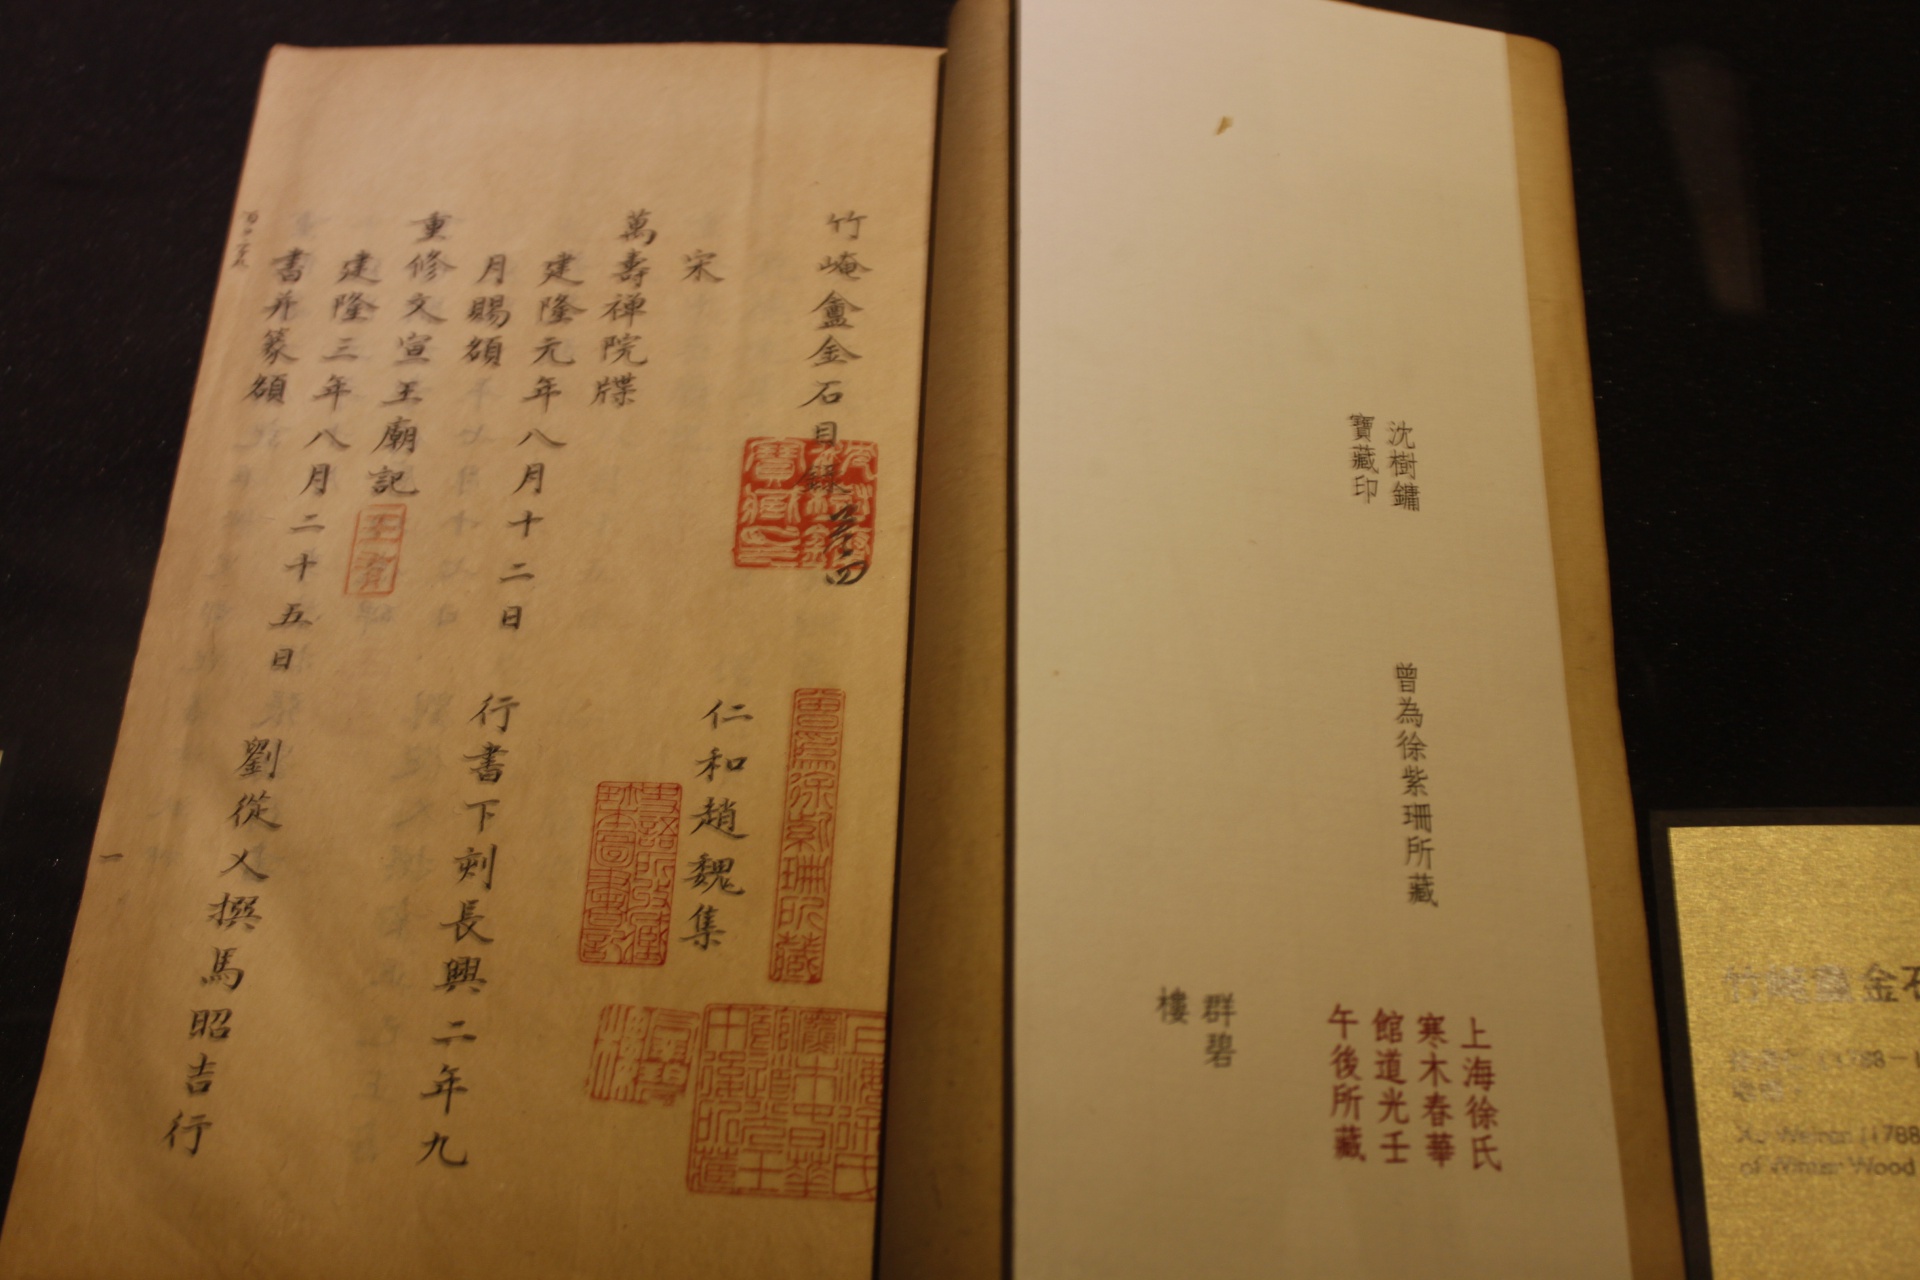 沈樹鏞
寶藏印
曾為徐紫珊所藏
上海徐氏
寒木春華
館道光壬
午後所藏
群碧
樓
竹崦盦金石目錄 卷四
宋
仁和趙魏集
萬壽禪院牒
建隆元年八月十二日 行書下刻長興二年九
月賜額
重修文宣王廟記
建隆三年八月二十五日 劉從乂撰馬昭吉行
書并篆額
一
金石
(1788
of Winter Wood